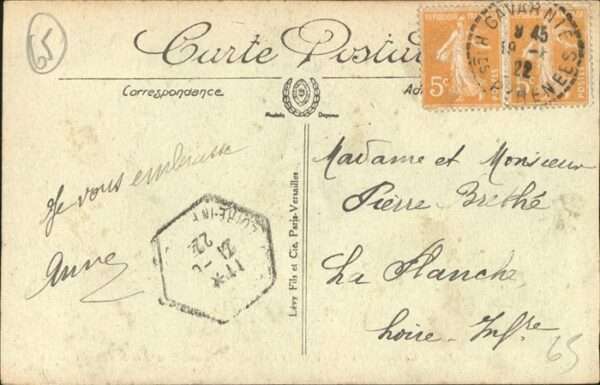 65
Carte Postale
Correspondance
Modèle Déposé
REPUBLIQUE FRANÇAISE
5c
5c
POSTES
GAVARNIE
Htes PYRENEES
45
22
Je vous embrasse
Anne
LOIRE-INF
22
Lévy Fils et Cie, Paris-Versailles
Madame et Monsieur
Pierre Brethé
La Planche
Loire-Infre
65